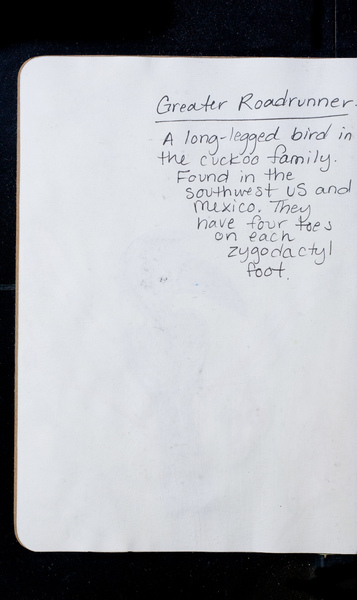 Greater Roadrunner.
A long-legged bird in
the cuckoo family.
Found in the
southwest US and
Mexico. They
have four toes
on each
zygodactyl
foot.